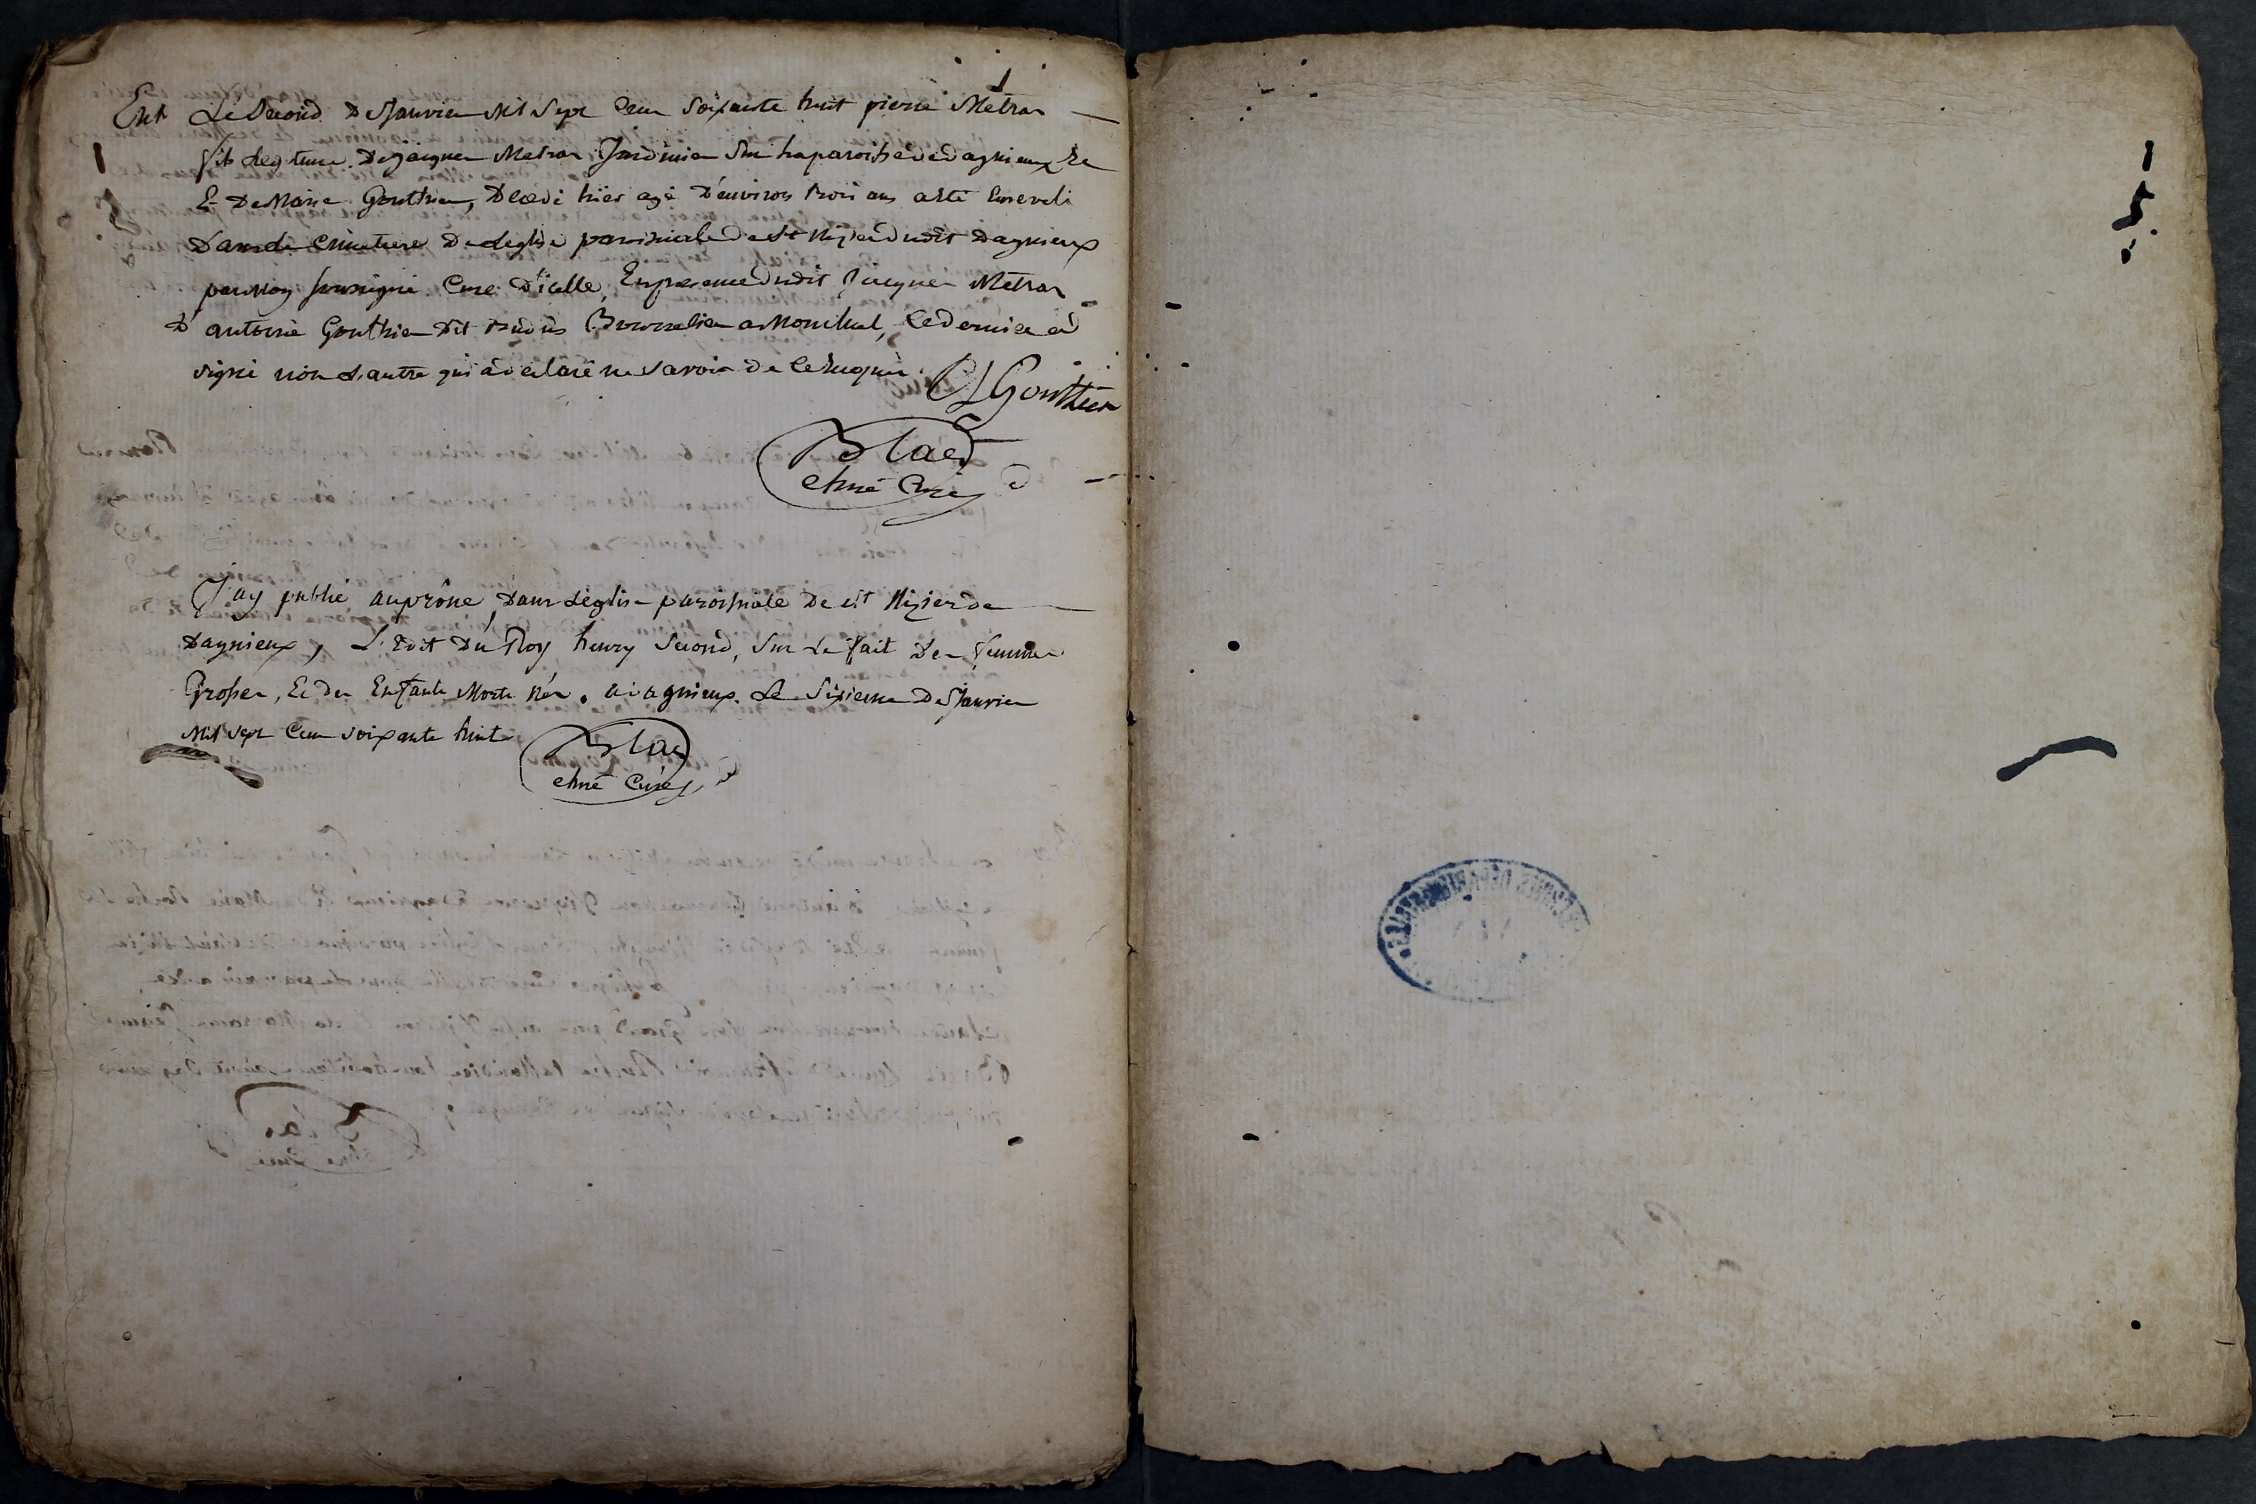 1
Ent Le Second De Janvier Mil Sept Cent Soixante huit pierre Metras
fils legitime De jacques Metras Jardinier Sur la paroisse de dagnieux
Et De Marie Gouthier, Decedé hier agé D'environ trois ans a été Enseveli
Dans le Cimetiere De L'eglise paroissiale de St Nizier dudit Dagnieux
par Moy soussigné Curé D'icelle, En presence dudit Jacques Metras
D'antoine Gouthier Dit Bourrelier a Montluel, Le dernier a
signé non L'autre qui a declaré ne savoir de ce Enquis
Gouthier
Blac
Curé
J'ay publié au prône Dans L'église paroissiale De St Nizier de
Dagnieux, L'Edit Du Roy henry Second, Sur le fait Des femmes
Grosses, Et des Enfants Morts Nés. a dagnieux Le Sixieme De Janvier
Mil Sept Cent soixante huit
Blac
Curé